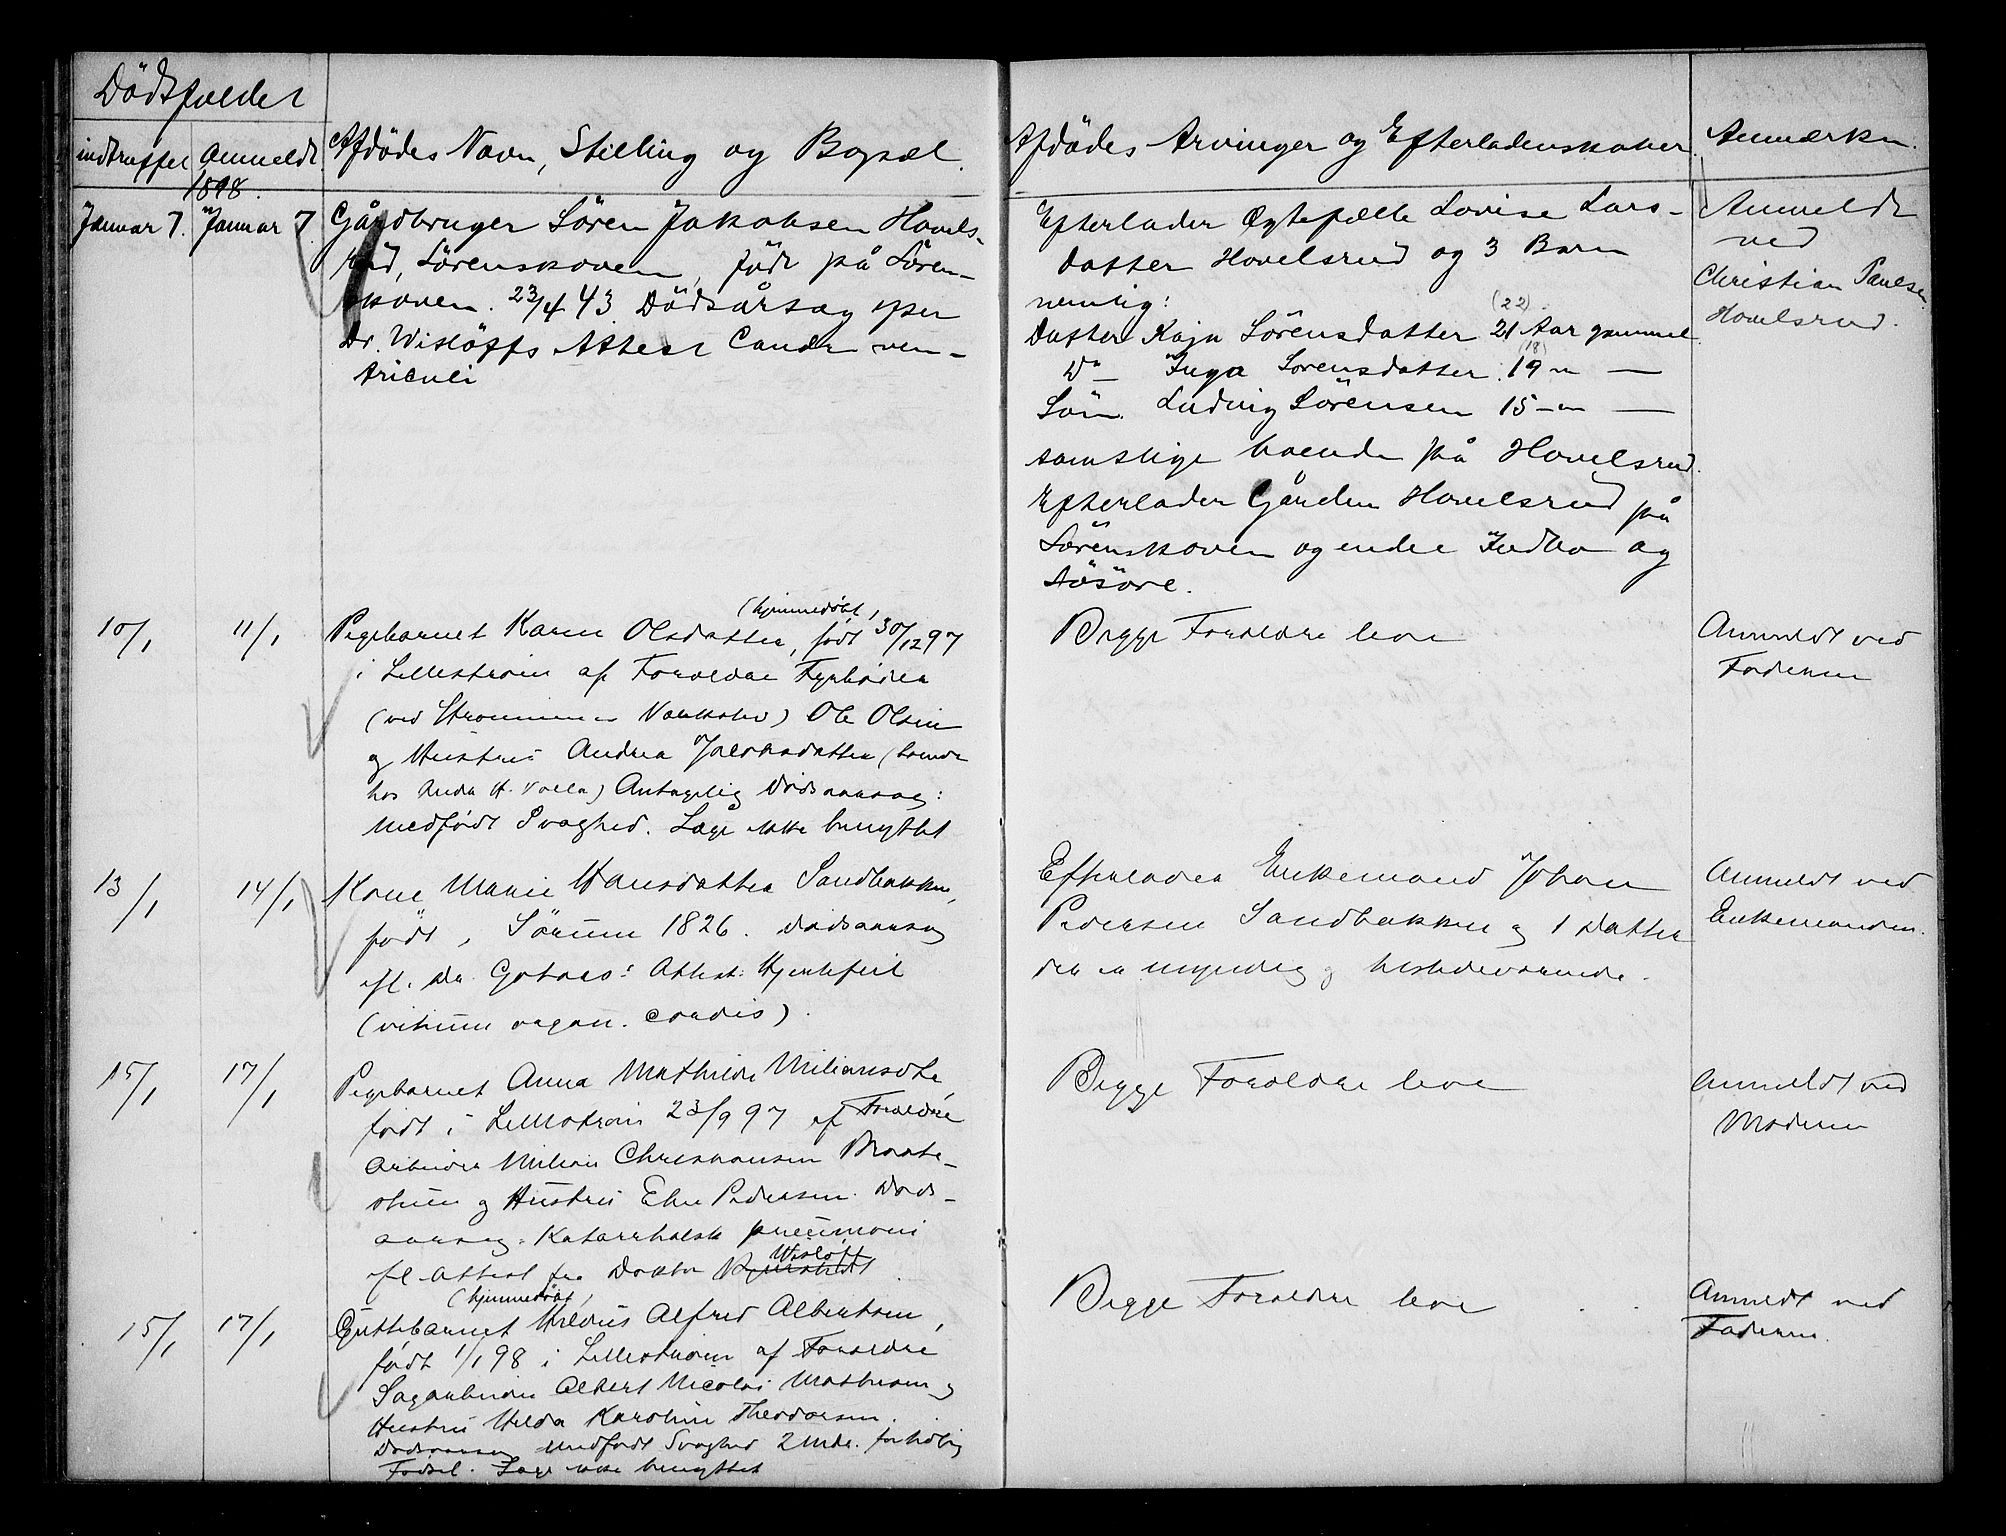 Dödsfaldet
indtruffet
Anmeldt
Afdödes Navn, Stilling og Bopæl.
Afdödes Arvinger og Efterladenskaber
Anmærkn.
1898.
Januar 7.
Januar 7.
Gårdbruger Sören Jakobsen Hovels-
rud, Sörenskoven, födt på Sören-
skoven. 23/4 43 Dödsårsag per
Dr. Wislöffs Attest Cancer ven-
triculi
Efterlader Ægtefælle Lovise Lars-
datter Hovelsrud og 3 Barn
nemlig:
(22)
Datter Kaja Sörensdatter 21 Aar gammel
(18)
Do Inga Sorensdatter 19 " —
Sön Ludvig Sörensen 15 — " —
samtlige boende på Hovelsrud.
Efterlader Gården Hovelsrud på
Sörenskoven og endel Indbo og
Lösöre.
Anmeldt
ved
Christian Paulsen
Hovelsrud.
10/1
11/1
(hjemmedöbt,
Pigebarnet Karen Olsdatter, födt 30/12 97
i Lilleström af Forældre Fyrböder
(ved Strømmens Værksted) Ole Olsen
og Hustru Andrea Jakobsdatter (boende
hos Anders H. Volla) Antagelig Dödsaarsag:
Medfödt Svaghed. Læge ikke benyttet
Begge Forældre leve
Anmeldt ved
Faderen
13/1
14/1
Kone Marie Hansdatter Sandbakken,
födt i Sörum 1826. Dødsaarsag
efl. Dr. Gotaas' Attest: Hjertefeil
(vitium organ. cordis).
Efterlader Enkemand Johan
Pedersen Sandbakken og 1 Datter
der er myndig og tilstedeværende.
Anmeldt ved
Enkemanden.
15/1
17/1
Pigebarnet Anna Mathilde Miliansdtr
födt i Lilleström 23/9 97 af Forældre
Arbeider Milian Christiansen Braate-
stuen og Hustru Eline Pedersen. Døds-
aarsag: Katarrhalsk pneumoni
Wislöff
efl. Attest fra Doktor
Begge Forældre leve
Anmeldt ved
Moderen
15/1
17/1
(hjemmedöbt,
Guttebarnet Hildus Alfred Albertsen,
födt 1/1 98 i Lilleström af Forældre
Sagarbeider Albert Nicolai Mathisen og
Hustru Hilda Karoline Theodorsen.
Dødsaarsag Medfödt Svaghed 2 Mdr. for tidlig
Fødsel. Læge ikke benyttet
Begge Forældre leve
Anmeldt ved
Faderen.